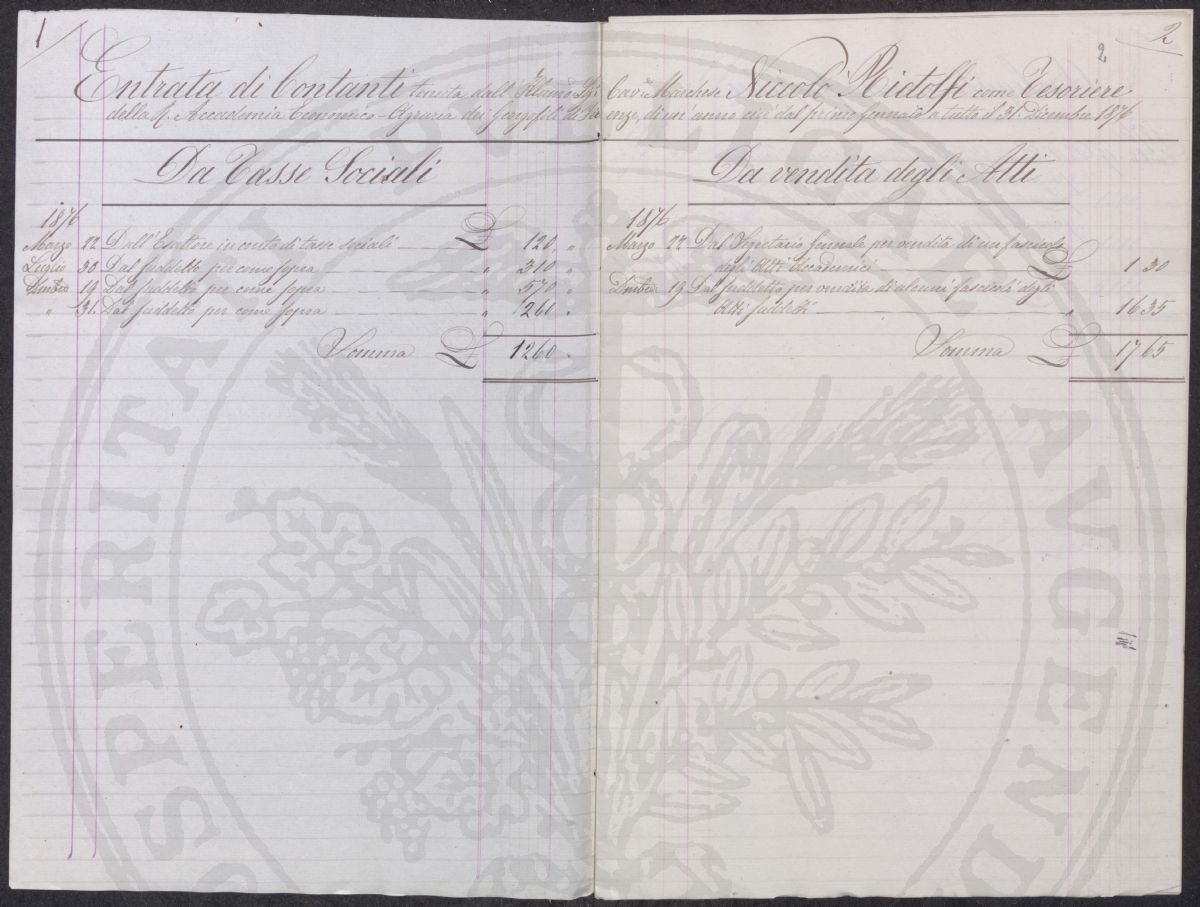 1
2
2
Entrata di Contanti tenuta dall' Illmo Sigr Cav.e Marchese Niccolò Ridolfi come Tesoriere
della R. Accademia Economico-Agraria dei Georgofili di Firenze, di un' anno cioè dal primo Gennaio a tutto il 31. Dicembre 1876
Da Tasse Sociali
1876
Marzo 22 Dall' Esattore in conto di tasse sociali £ 120 "
Luglio 30. Dal suddetto per come sopra " 310 "
Dmbre 19. Dal suddetto per come sopra " 570 "
" 31. Dal suddetto per come sopra " 260 "
Somma £ 1260 "
Da vendita degli Atti
1876
Marzo 22 Dal Segretario Generale per vendita di un fascicolo
degli Atti Accademici £ 1 30
Dmbre 19. Dal suddetto per vendita di alcuni fascicoli degli
Atti suddetti " 16 35
Somma £ 17 65
PROSPERITATI PUBLICAE AVGENDAE